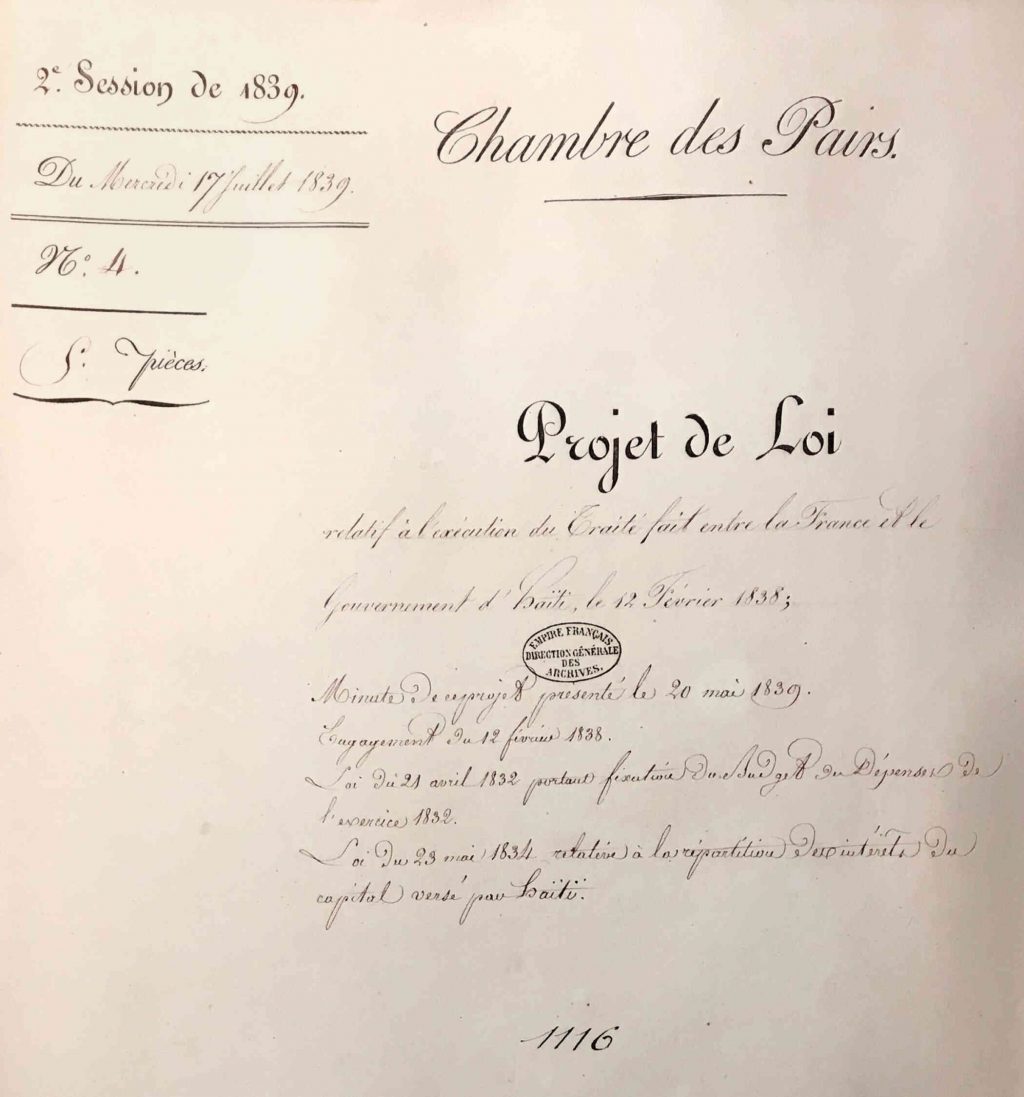 2e. Session de 1839.
Du Mercredi 17 Juillet 1839.
No. 4.
pièces.
Chambre des Pairs.
Projet de Loi
relatif à l'exécution du Traité fait entre la France et le
Gouvernement d'haïti, le 12 Février 1838;
EMPIRE FRANÇAIS
DIRECTION GÉNÉRALE
DES
ARCHIVES.
Minute de ce projet présenté le 20 mai 1839.
Engagement du 12 février 1838.
Loi du 21 avril 1832 portant fixation du Budget des Dépenses de
l'exercice 1832.
Loi du 23 mai 1834 relative à la répartition des intérêts du
capital versé par haïti.
1116